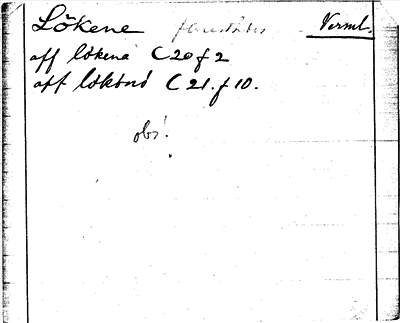 Lökene Verml.
aff lökena C 20 f 2
aff lökönö C 21. f 10.
obs!